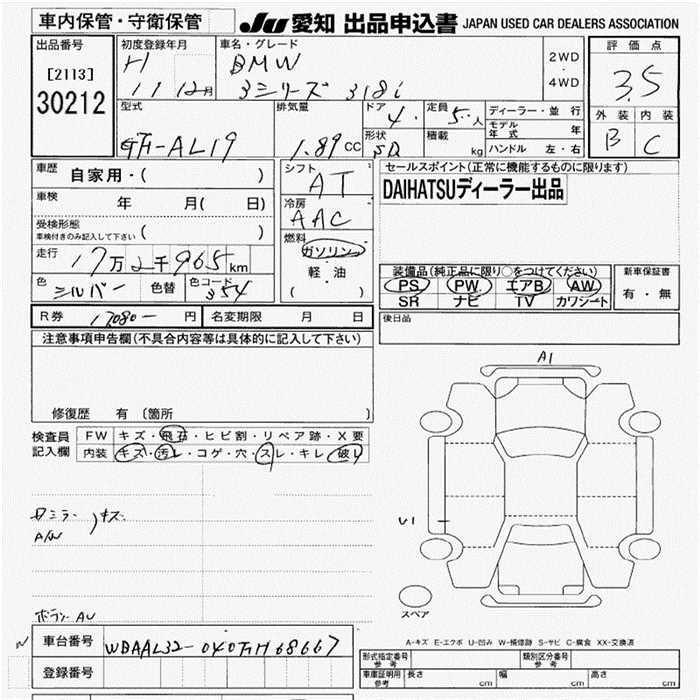 車内保管・守衛保管
JU 愛知 出品申込書 JAPAN USED CAR DEALERS ASSOCIATION
出品番号
[2113]
30212
初度登録年月
H 11 12月
車名・グレード
BMW
3シリーズ 318i
2WD
・
4WD
評価点
3.5
外装 内装
B C
型式
GH-AL19
排気量
1.89 CC
ドア 4
定員 5 人
形状 SD
積載 kg
ディーラー・並行
モデル年式 年
ハンドル 左・右
車歴 自家用・( )
車検 年 月( 日)
受検形態
車検付きのみ記入して下さい ( )
走行 17万2千965km
色 シルバー 色替 色コード 354
シフト AT
冷房 AAC
燃料
ガソリン
軽・油
( )
セールスポイント(正常に機能するものに限ります)
DAIHATSUディーラー出品
装備品(純正品に限り○をつけてください)
PS PW エアB AW
SR ナビ TV カワシート
新車保証書
有・無
R券 17080- 円 名変期限 月 日
後日品
注意事項申告欄(不具合内容等は具体的に記入して下さい)
修復歴 有〔箇所 〕
検査員
記入欄
FW キズ・飛石・ヒビ割・リペア跡・X要
内装 キズ・汚レ・コゲ・穴・スレ・キレ・破レ
A1
U1
キズ
A/W
スペア
A-キズ E-エクボ U-凹み W-補修跡 S-サビ C-腐食 XX-交換済
車台番号
登録番号
形式指定番号 参考
類別区分番号 参考
車庫証明用 参考 長さ cm 幅 cm 高さ cm